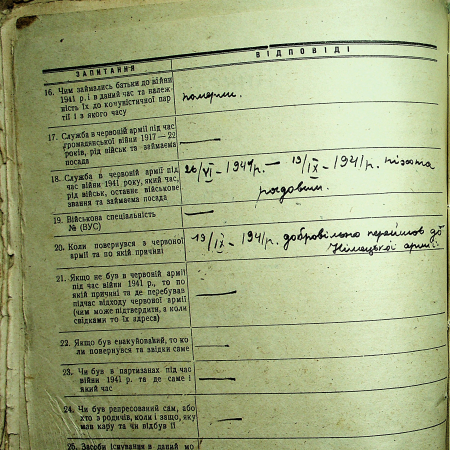 ЗАПИТАННЯ
ВІДПОВІДІ
16. Чим займались батьки до війни
1941 р. і в даний час та належ-
ність їх до комуністичної пар
тії і з якого часу
померли.
17. Служба в червоній армії під час
громадянської війни 1917—22
років, рід військ та займаєма
посада
—
18. Служба в червоній армії під
час війни 1941 року, який час,
рід військ, останнє військове
звання та займаєма посада
26/VI - 1941 р. — 19/IX - 1941 р. піхота
рядовим.
19. Військова спеціальність
№ (ВУС)
—
20. Коли повернувся з червоної
армії та по якій причині
19/IX - 1941 р. добровільно перейшов до
Німецької армії.
21. Якщо не був в червоній армії
під час війни 1941 р., то по
якій причині та де перебував
підчас відходу червоної армії
(чим може підтвердити, а коли
свідками то їх адреса)
—
22. Якщо був евакуйований, то ко
ли повернувся та звідки саме
—
23. Чи був в партизанах під час
війни 1941 р. та де саме і
який час
—
24. Чи був репресований сам, або
хто з родичів, коли і защо, яку
мав кару та чи відбув її
—
25. Засоби існування в даний мо